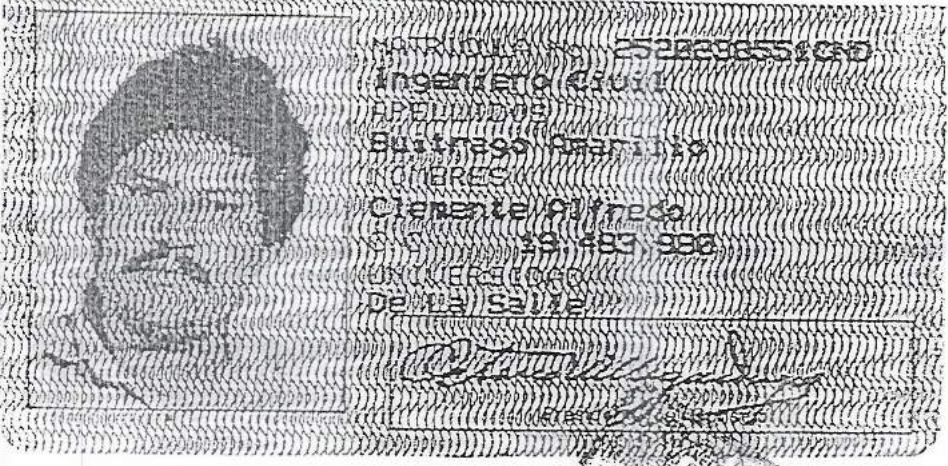 MATRICULA No. 2520209551CND
Ingeniero Civil
APELLIDOS
Buitrago Amarillo
NOMBRES
Clemente Alfredo
C.C. 19.483.990
UNIVERSIDAD
De La Salle